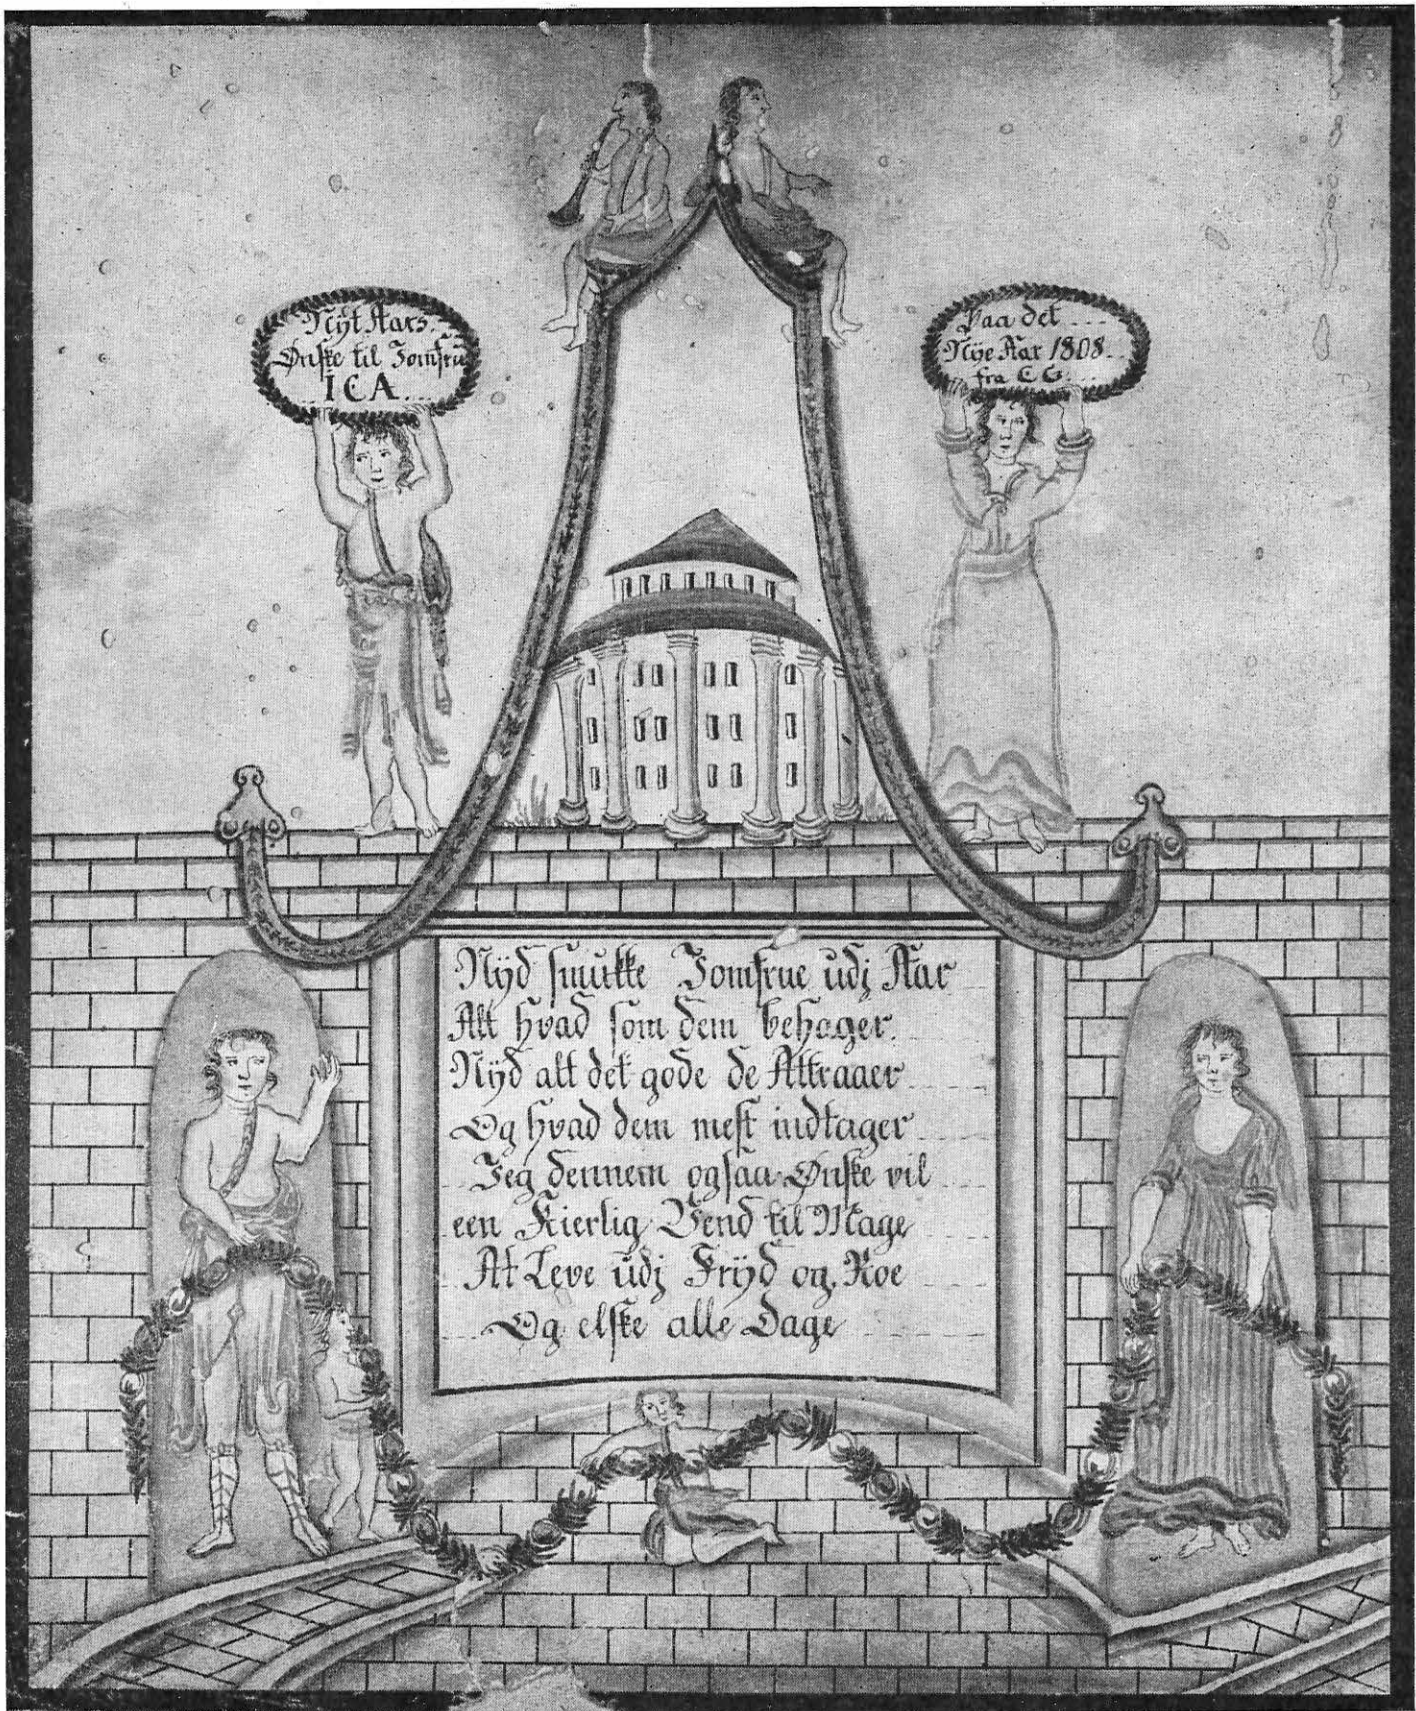 Nÿt Aars
Ønske til Jomfru
I C A
Paa det
Nÿe Aar 1808
fra C G
Nÿd smukke Jomfrue udj Aar
Alt hvad som dem behager.
Nÿd alt det gode de Attraaer
Og hvad dem mest indtager
Jeg dennem ogsaa Ønske vil
een Kierlig Vend til Mage
At Leve udj Frÿd og Roe
Og elske alle Dage